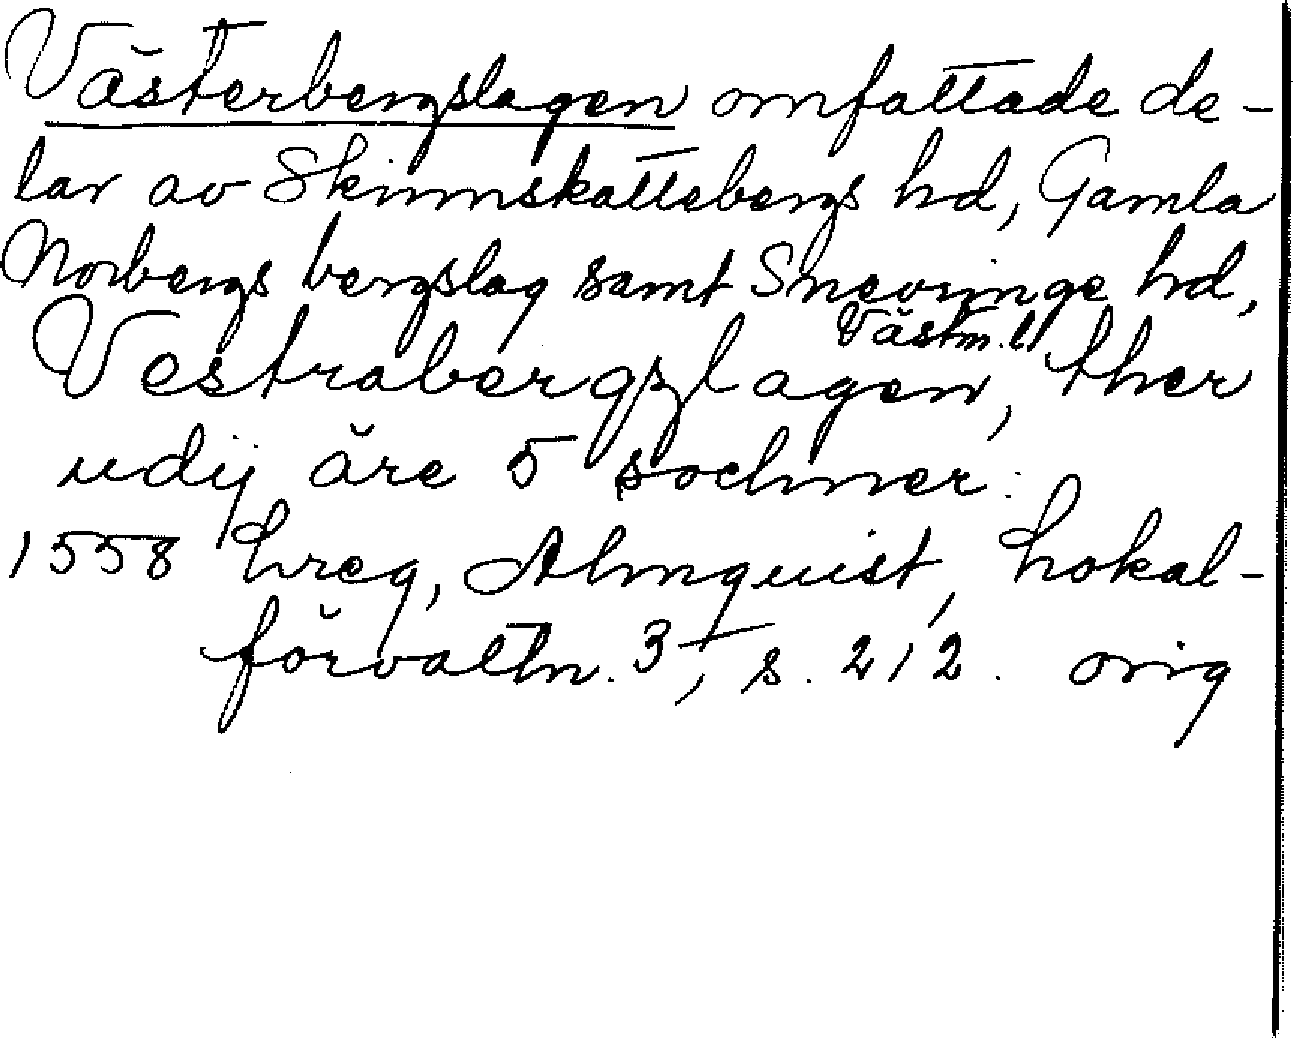 Västerbergslagen omfattade de-
lar av Skinnskattebergs hd, Gamla
Norbergs bergslag samt Snevringe hd,
Västm. l.
Vestrabergzlagen, ther
udij äre 5 sochner:
1558 Lreg, Almquist, Lokal-
förvaltn. 3, s. 212. orig